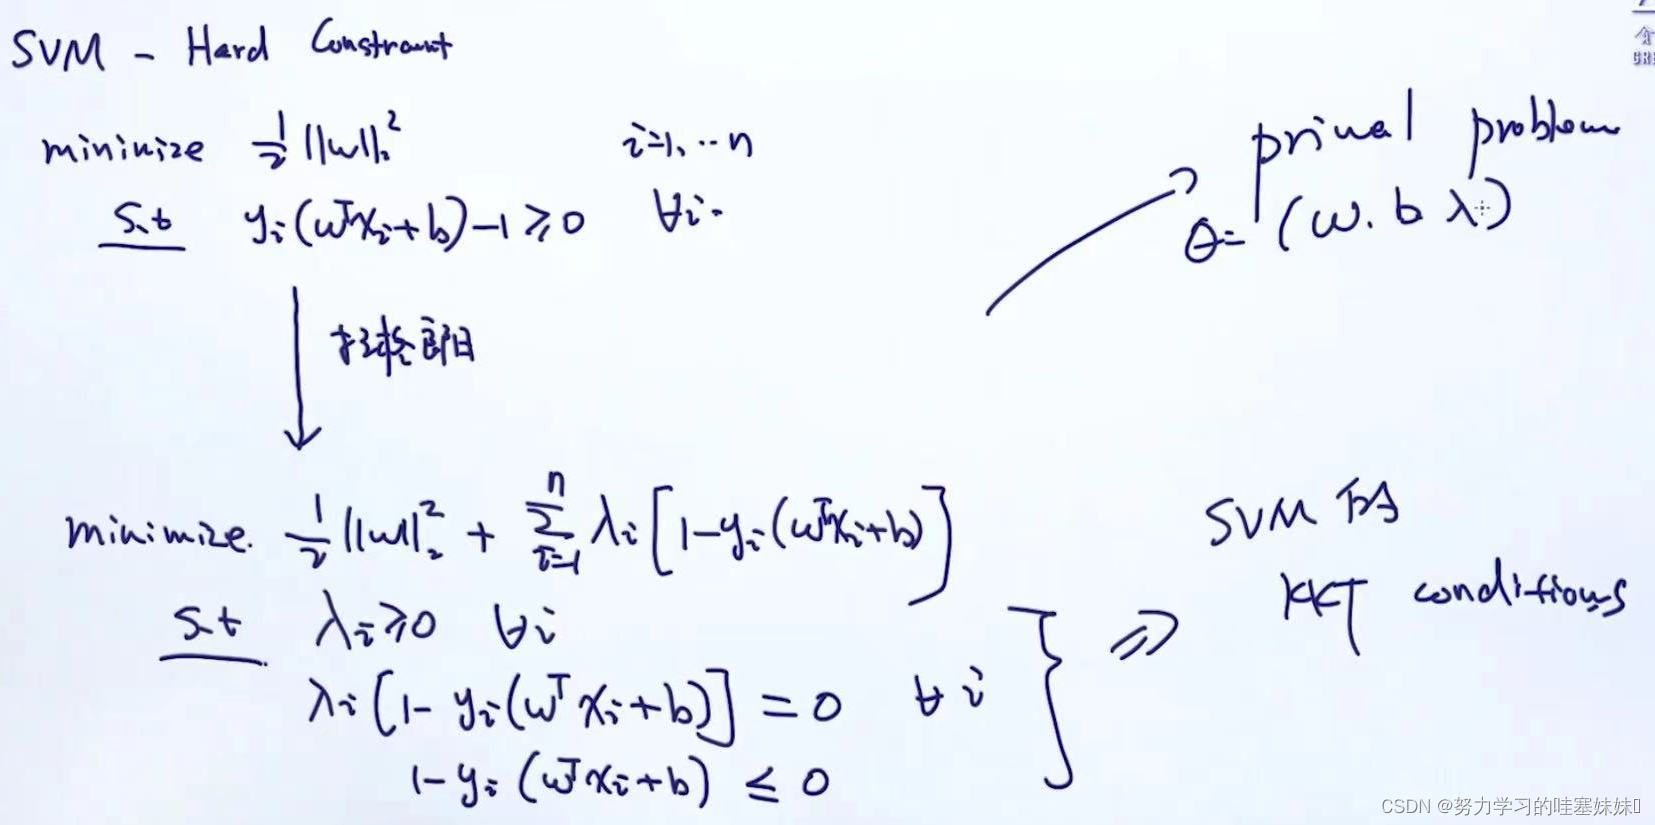 SVM - Hard Constraint
minimize 1/2 ||w||₂² i=1,...n
s.t yᵢ(wᵀxᵢ+b)-1≥0 ∀i.
拉格郎日
primal problem
θ=(w.b λ)
minimize. 1/2 ||w||₂² + Σᵢ₌₁ⁿ λᵢ[1-yᵢ(wᵀxᵢ+b)]
s.t λᵢ≥0 ∀i
λᵢ[1-yᵢ(wᵀxᵢ+b)]=0 ∀i
1-yᵢ(wᵀxᵢ+b)≤0
⇒ SVM 的
KKT conditions
CSDN @努力学习的哇塞妹妹